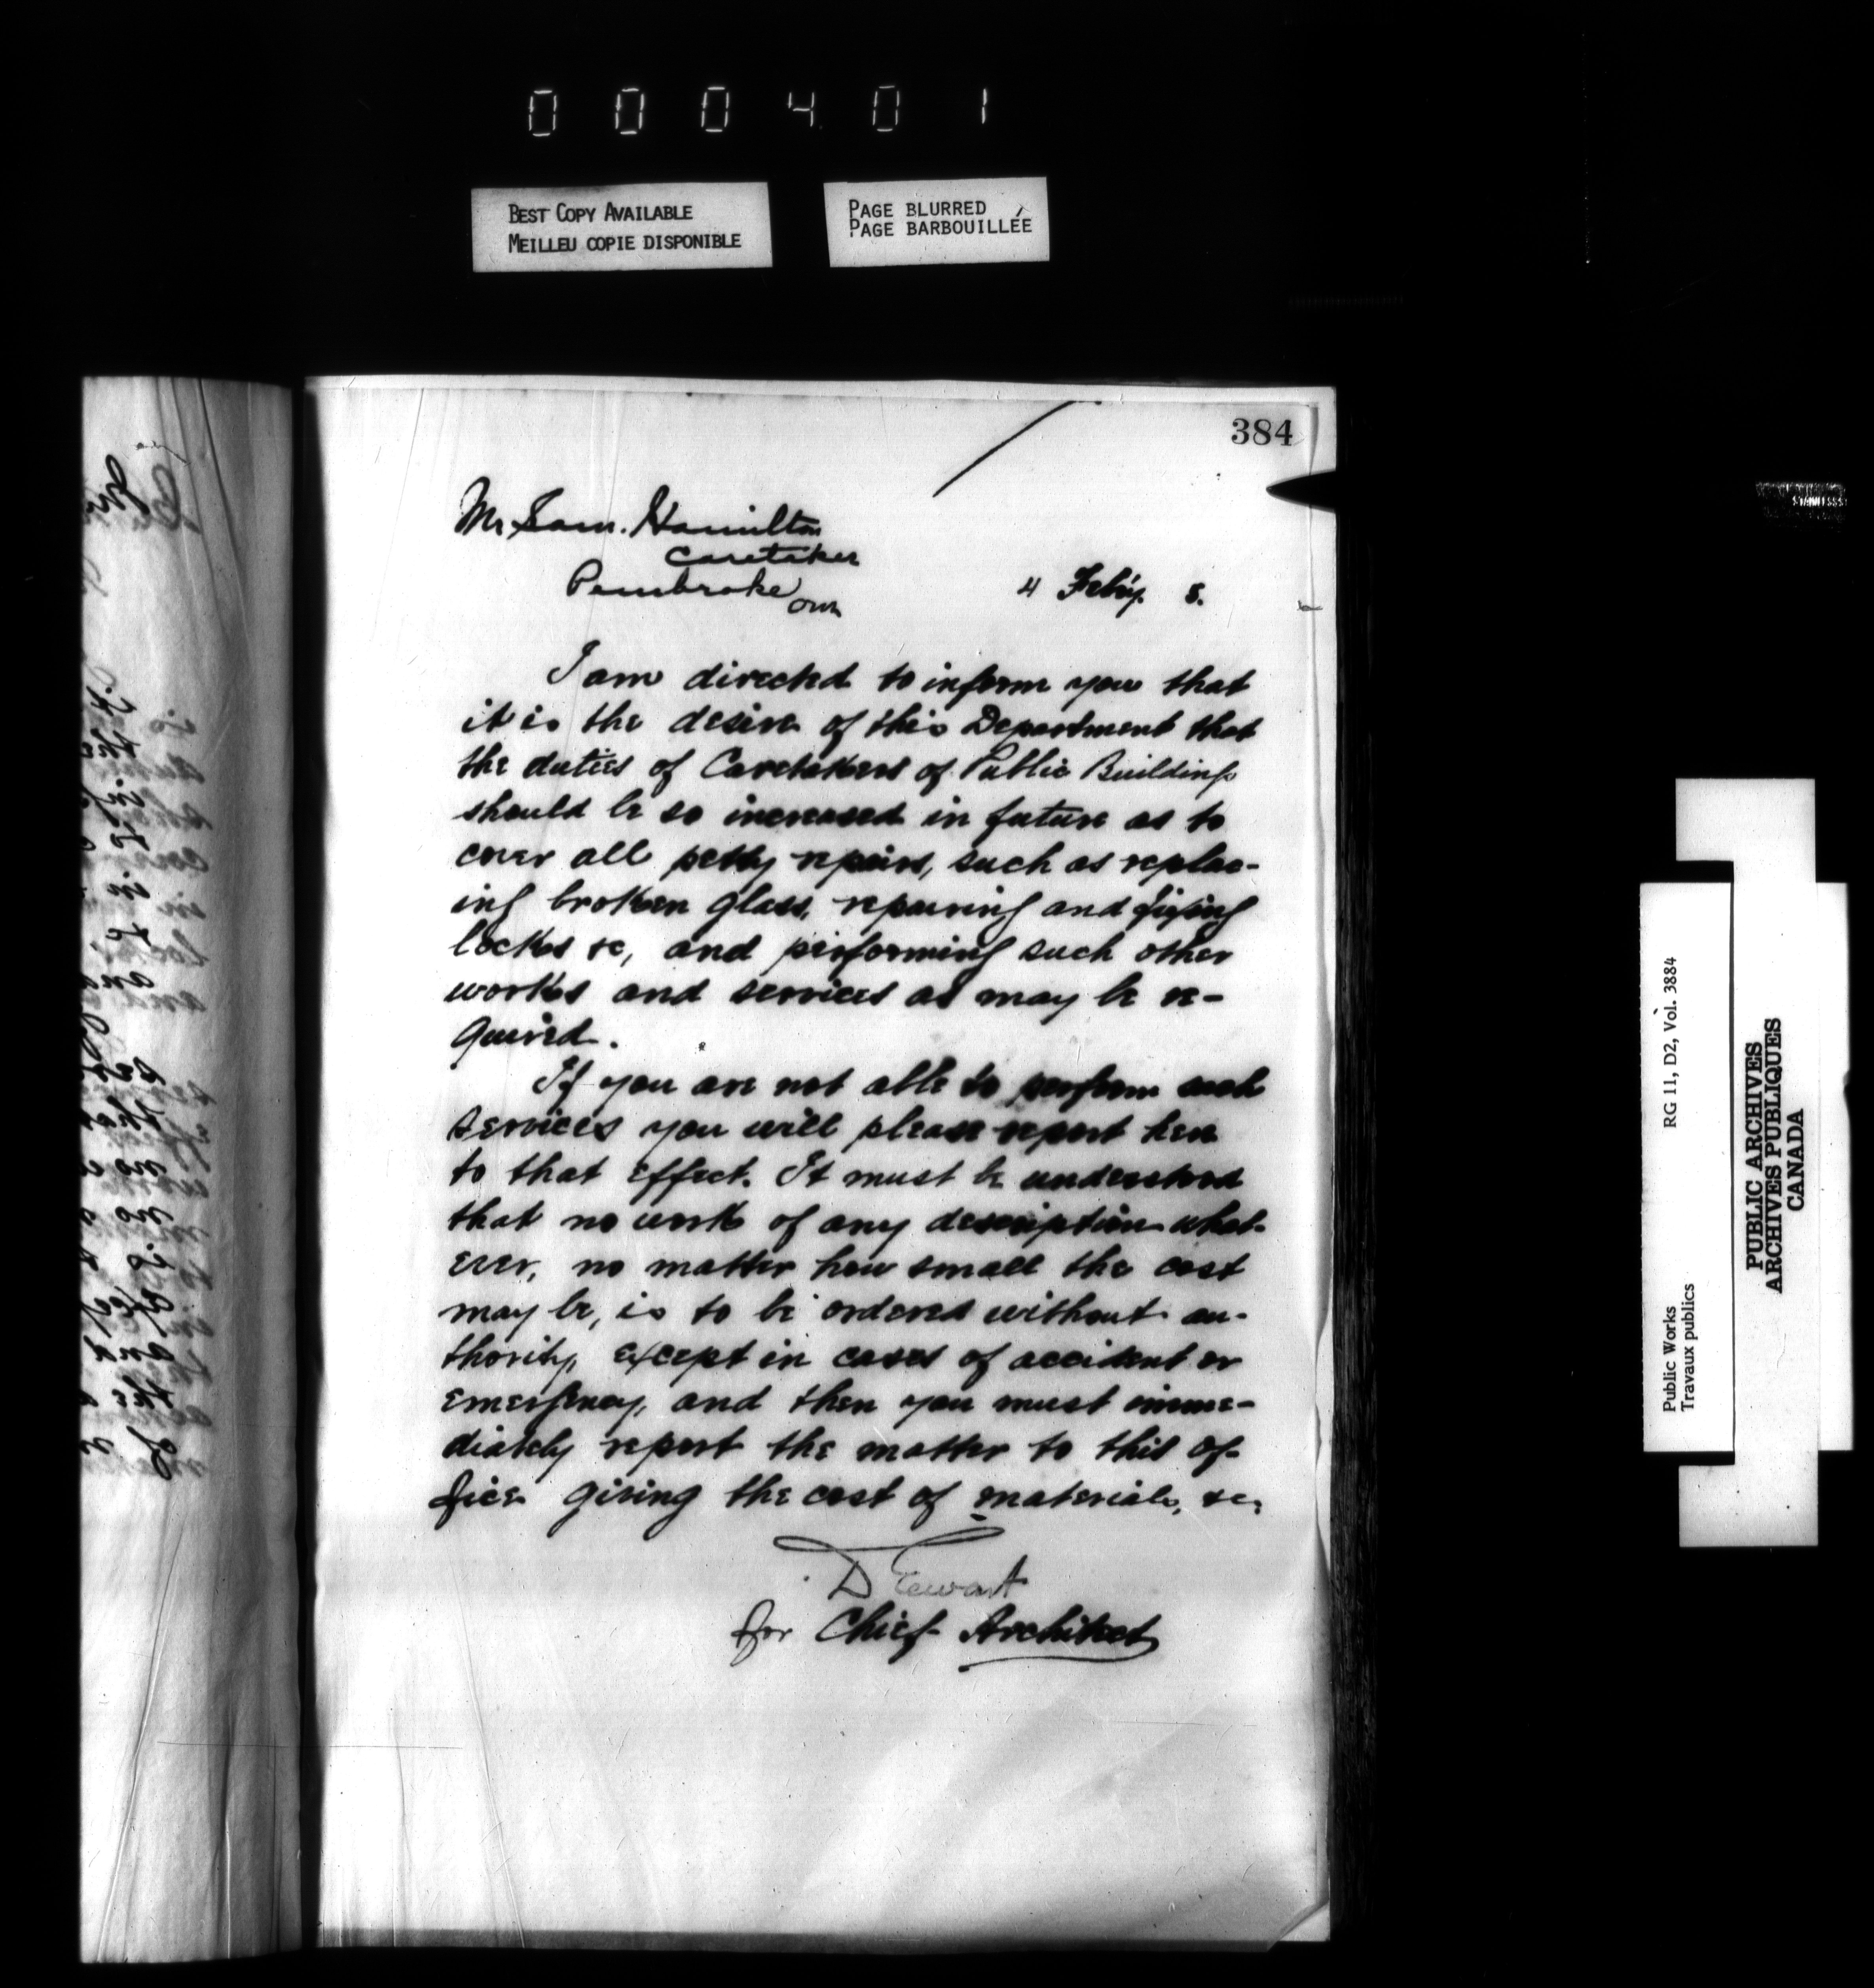 000401
BEST COPY AVAILABLE
MEILLEU COPIE DISPONIBLE
PAGE BLURRED
PAGE BARBOUILLÉE
384
Mr Sam. Hamilton
Caretaker
Pembroke
Ont
4 Feb'y. 8.
I am directed to inform you that
it is the desire of this Department that
the duties of Caretakers of Public Buildings
should be so increased in future as to
cover all petty repairs, such as replac-
ing broken glass, repairing and fixing
locks &c, and performing such other
works and services as may be re-
quired.
If you are not able to perform such
services you will please report here
to that effect. It must be understood
that no work of any description what-
ever, no matter how small the cost
may be, is to be ordered without au-
thority, except in cases of accident or
emergency, and then you must imme-
diately report the matter to this of-
fice giving the cost of materials, &c.
D Ewart
for Chief Architect
Public Works
Travaux publics
RG 11, D2, Vol. 3884
PUBLIC ARCHIVES
ARCHIVES PUBLIQUES
CANADA